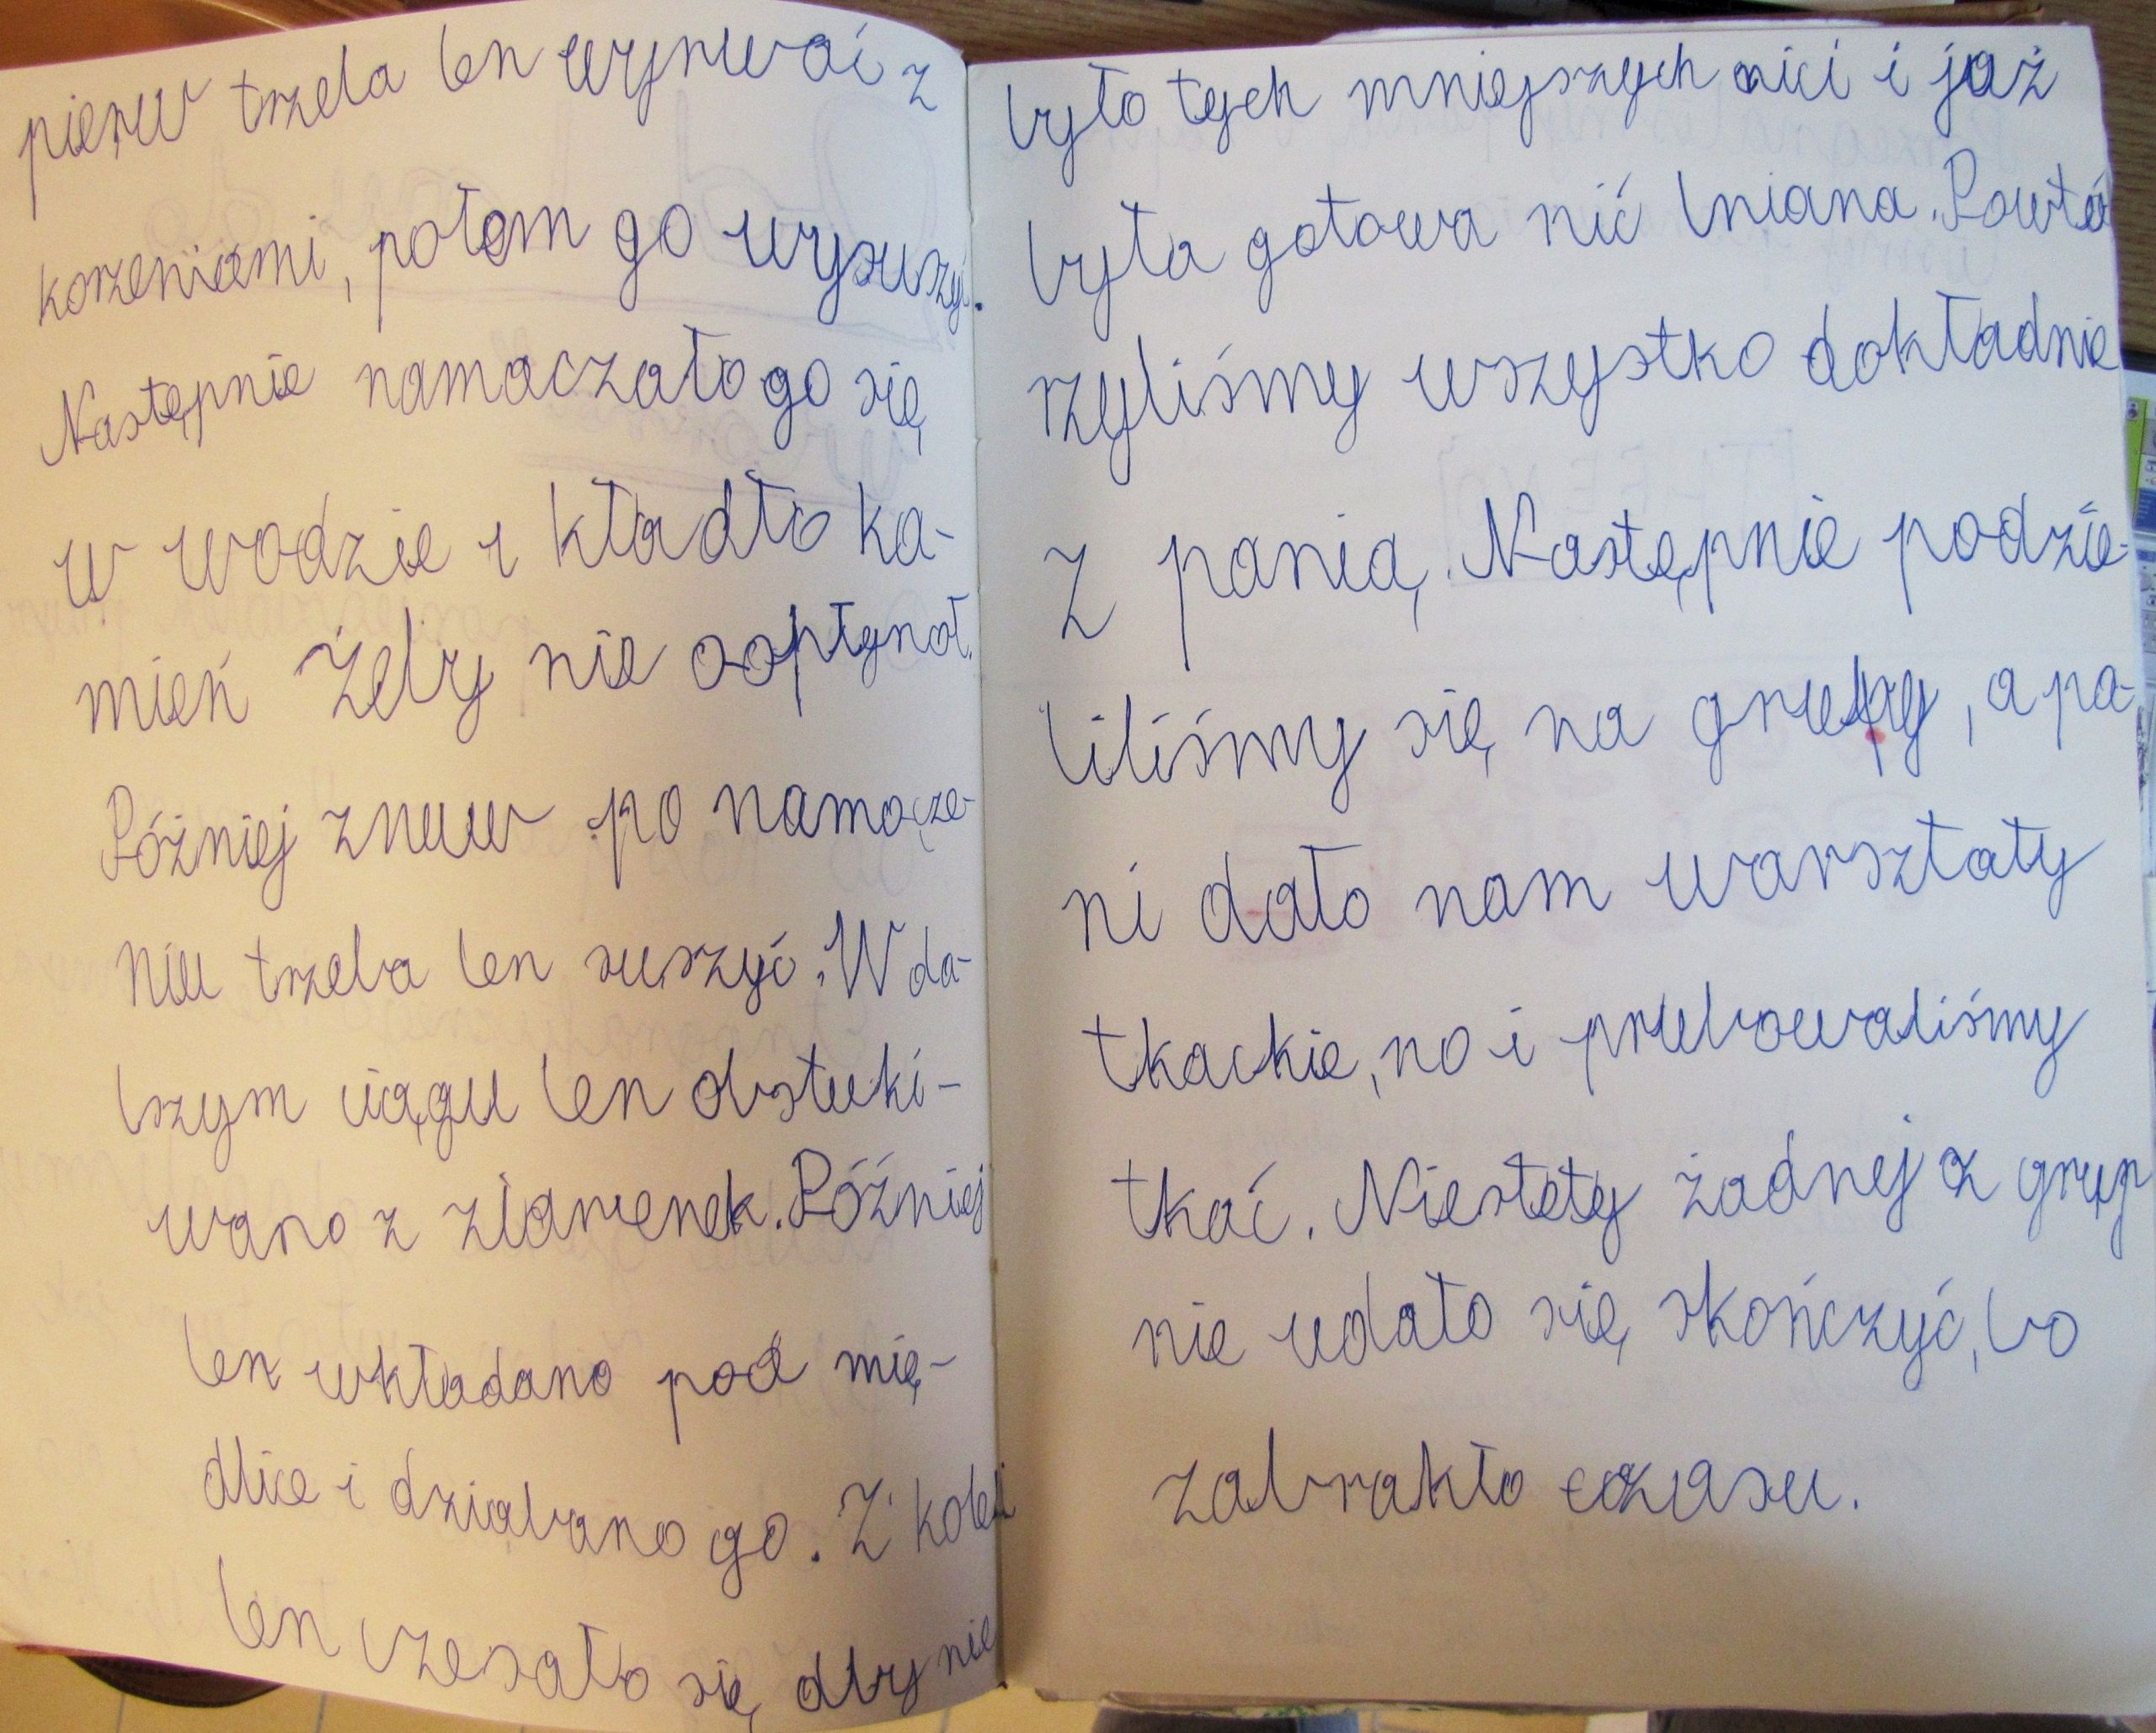 pierw trzeba len wyrwać z
korzeniami, potem go wysuszyć.
Następnie namaczało go się
w wodzie i kładło ka-
mień żeby nie odpłynoł.
Później znuw po namocze-
niu trzeba len suszyć. W da-
lszym ciągu len obstuki-
wano z ziarenek. Później
len wkładano pod mię-
dlice i dziąbano go. Z kolei
len czesało się aby nie
było tych mniejszych nici i już
była gotowa nić lniana. Powtó
rzyliśmy wszystko dokładnie
z panią. Następnie podzie-
liliśmy się na grupy, a pa-
ni dało nam warsztaty
tkackie, no i prubowaliśmy
tkać. Niestety żadnej z grup
nie udało się skończyć, bo
zabrakło czasu.